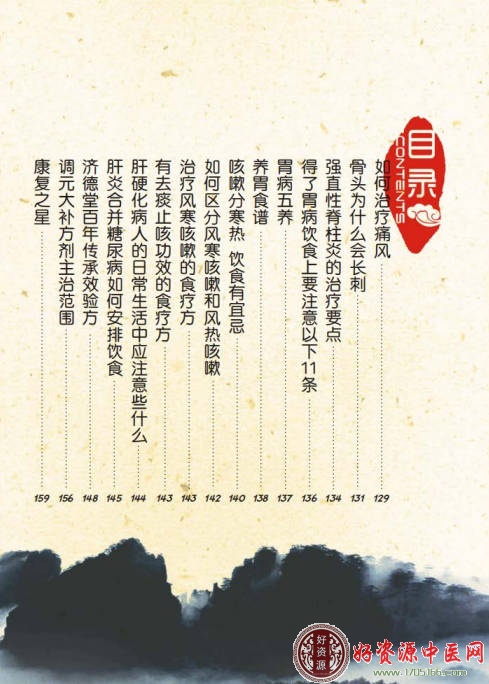 目录
CONTENTS
如何治疗痛风 129
骨头为什么会长刺 131
强直性脊柱炎的治疗要点 134
得了胃病饮食上要注意以下11条 136
胃病五养 137
养胃食谱 138
咳嗽分寒热 饮食有宜忌 140
如何区分风寒咳嗽和风热咳嗽 142
治疗风寒咳嗽的食疗方 143
有去痰止咳功效的食疗方 143
肝硬化病人的日常生活中应注意些什么 144
肝炎合并糖尿病如何安排饮食 145
济德堂百年传承效验方 148
调元大补方剂主治范围 156
康复之星 159
好资源
好资源中医网
www.1705166.com